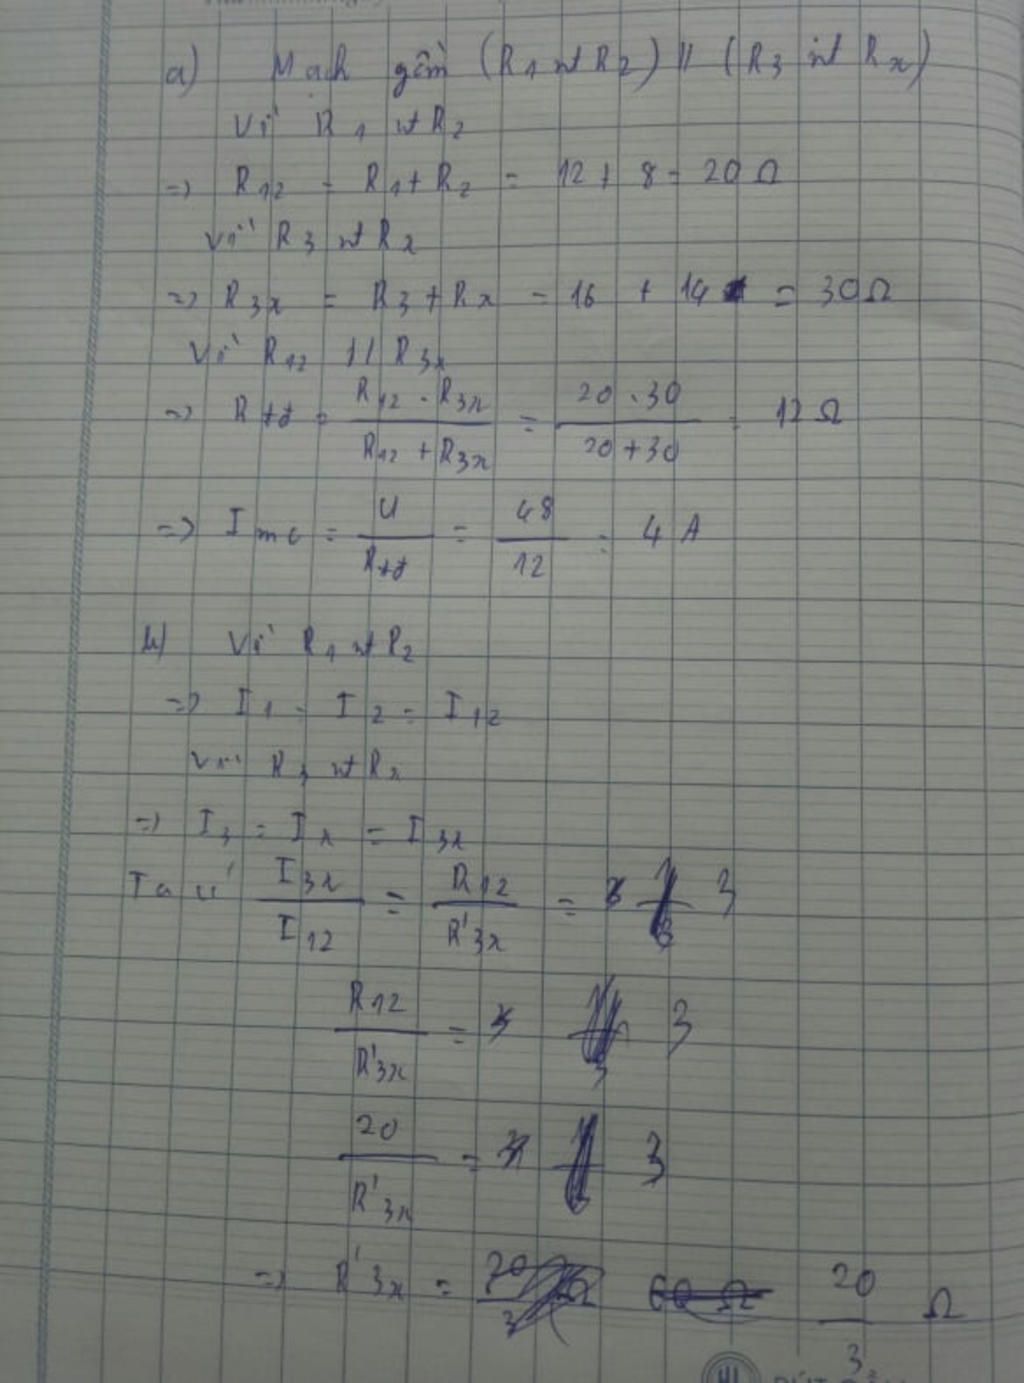 a) Mạch gồm (R1 nt R2) // (R3 nt Rx)
Vì R1 nt R2
=> R12 = R1 + R2 = 12 + 8 = 20 Ω
Vì R3 nt Rx
=> R3x = R3 + Rx = 16 + 14 = 30 Ω
Vì R12 // R3x
=> Rtđ = R12 . R3x / R12 + R3x = 20 . 30 / 20 + 30 = 12 Ω
=> Imc = U / Rtđ = 48 / 12 = 4 A
b) Vì R1 nt R2
=> I1 = I2 = I12
Vì R3 nt Rx
=> I3 = Ix = I3x
Ta có I3x / I12 = R12 / R'3x = 3
R12 / R'3x = 3
20 / R'3x = 3
=> R'3x = 20 / 3 Ω